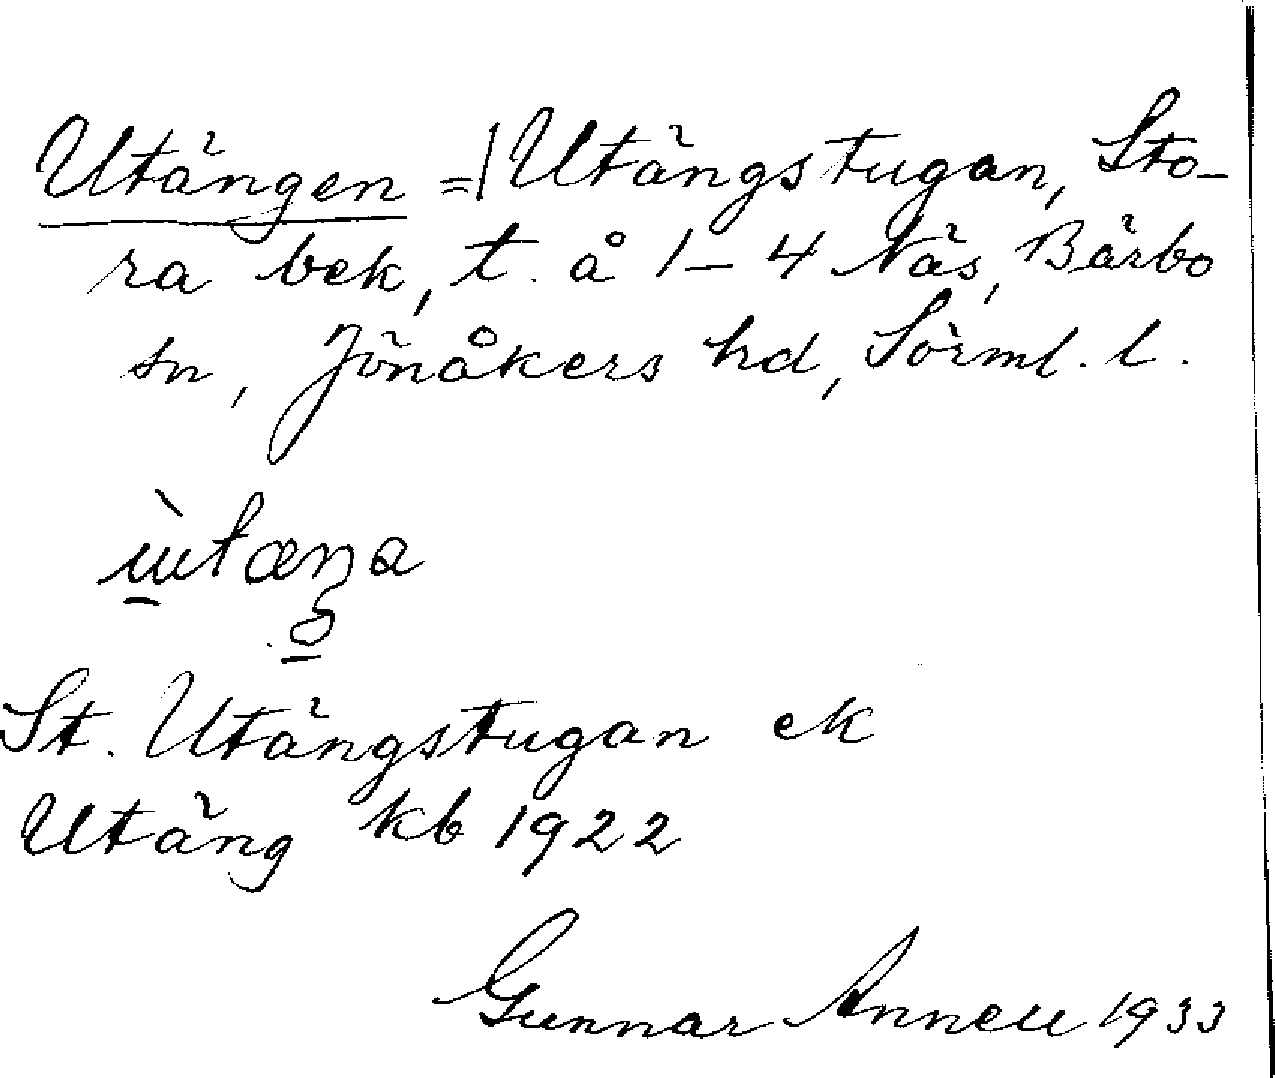 Utängen =/Utängstugan, Sto-
ra bek, t. å 1–4 Näs, Bärbo
sn, Jönåkers hd, Sörml. l.
St. Utängstugan ek
Utäng kb 1922
Gunnar Annell 1933